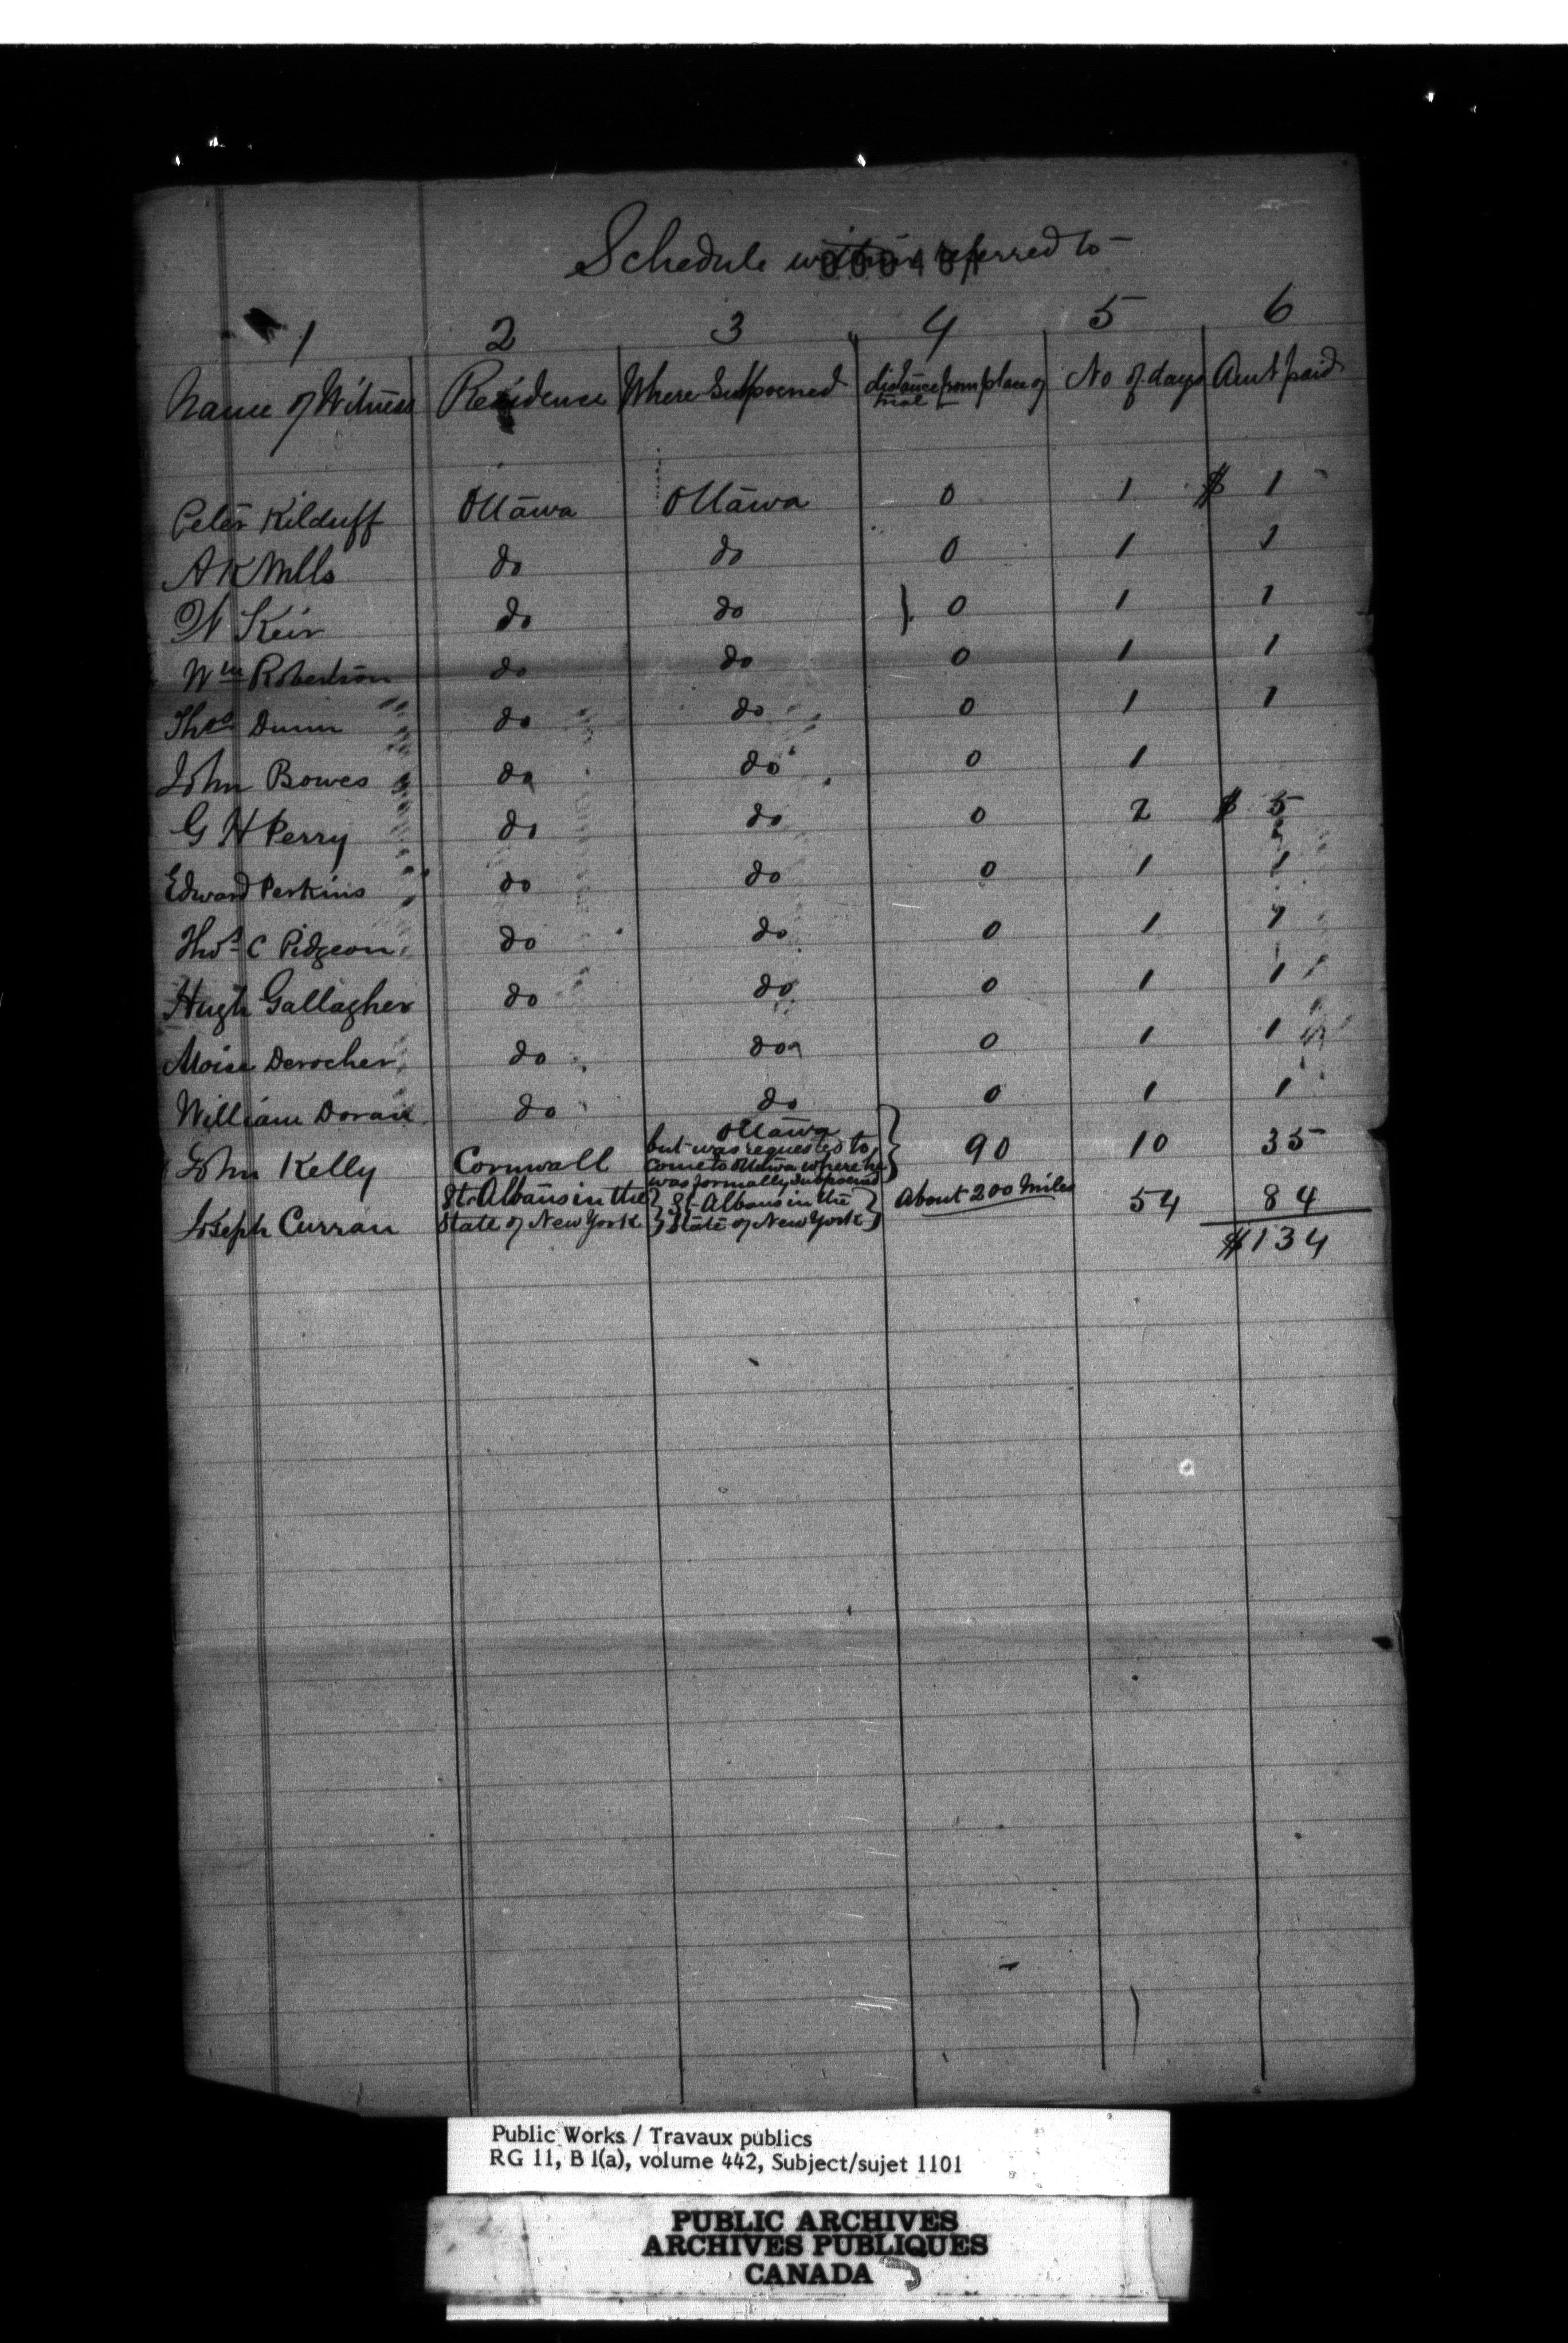 Schedule within referred to -
1 2 3 4 5 6
Name of Witness Residence Where Subpoened distance from place of trial - No of days Amt paid
Peter Kilduff Ottawa Ottawa 0 1 $ 1
A K Mills do do 0 1 1
W Keir do do } 0 1 1
Wm Robertson do do 0 1 1
Thos Dunn do do 0 1 1
John Bowes do do 0 1
G H Perry do do 0 2 $ 5
Edward Perkins do do 0 1 1
Thos C Pidgeon do do 0 1 1
Hugh Gallagher do do 0 1 1
Moise Derocher do do 0 1 1
William Doran do do 0 1 1
John Kelly Cornwall Ottawa but was requested to come to Ottawa where he was formally subpoened } 90 10 35
Joseph Curran St. Albans in the State of New York } St. Albans in the State of New York } About 200 Miles 54 84
$134
Public Works / Travaux publics
RG 11, B 1(a), volume 442, Subject/sujet 1101
PUBLIC ARCHIVES
ARCHIVES PUBLIQUES
CANADA